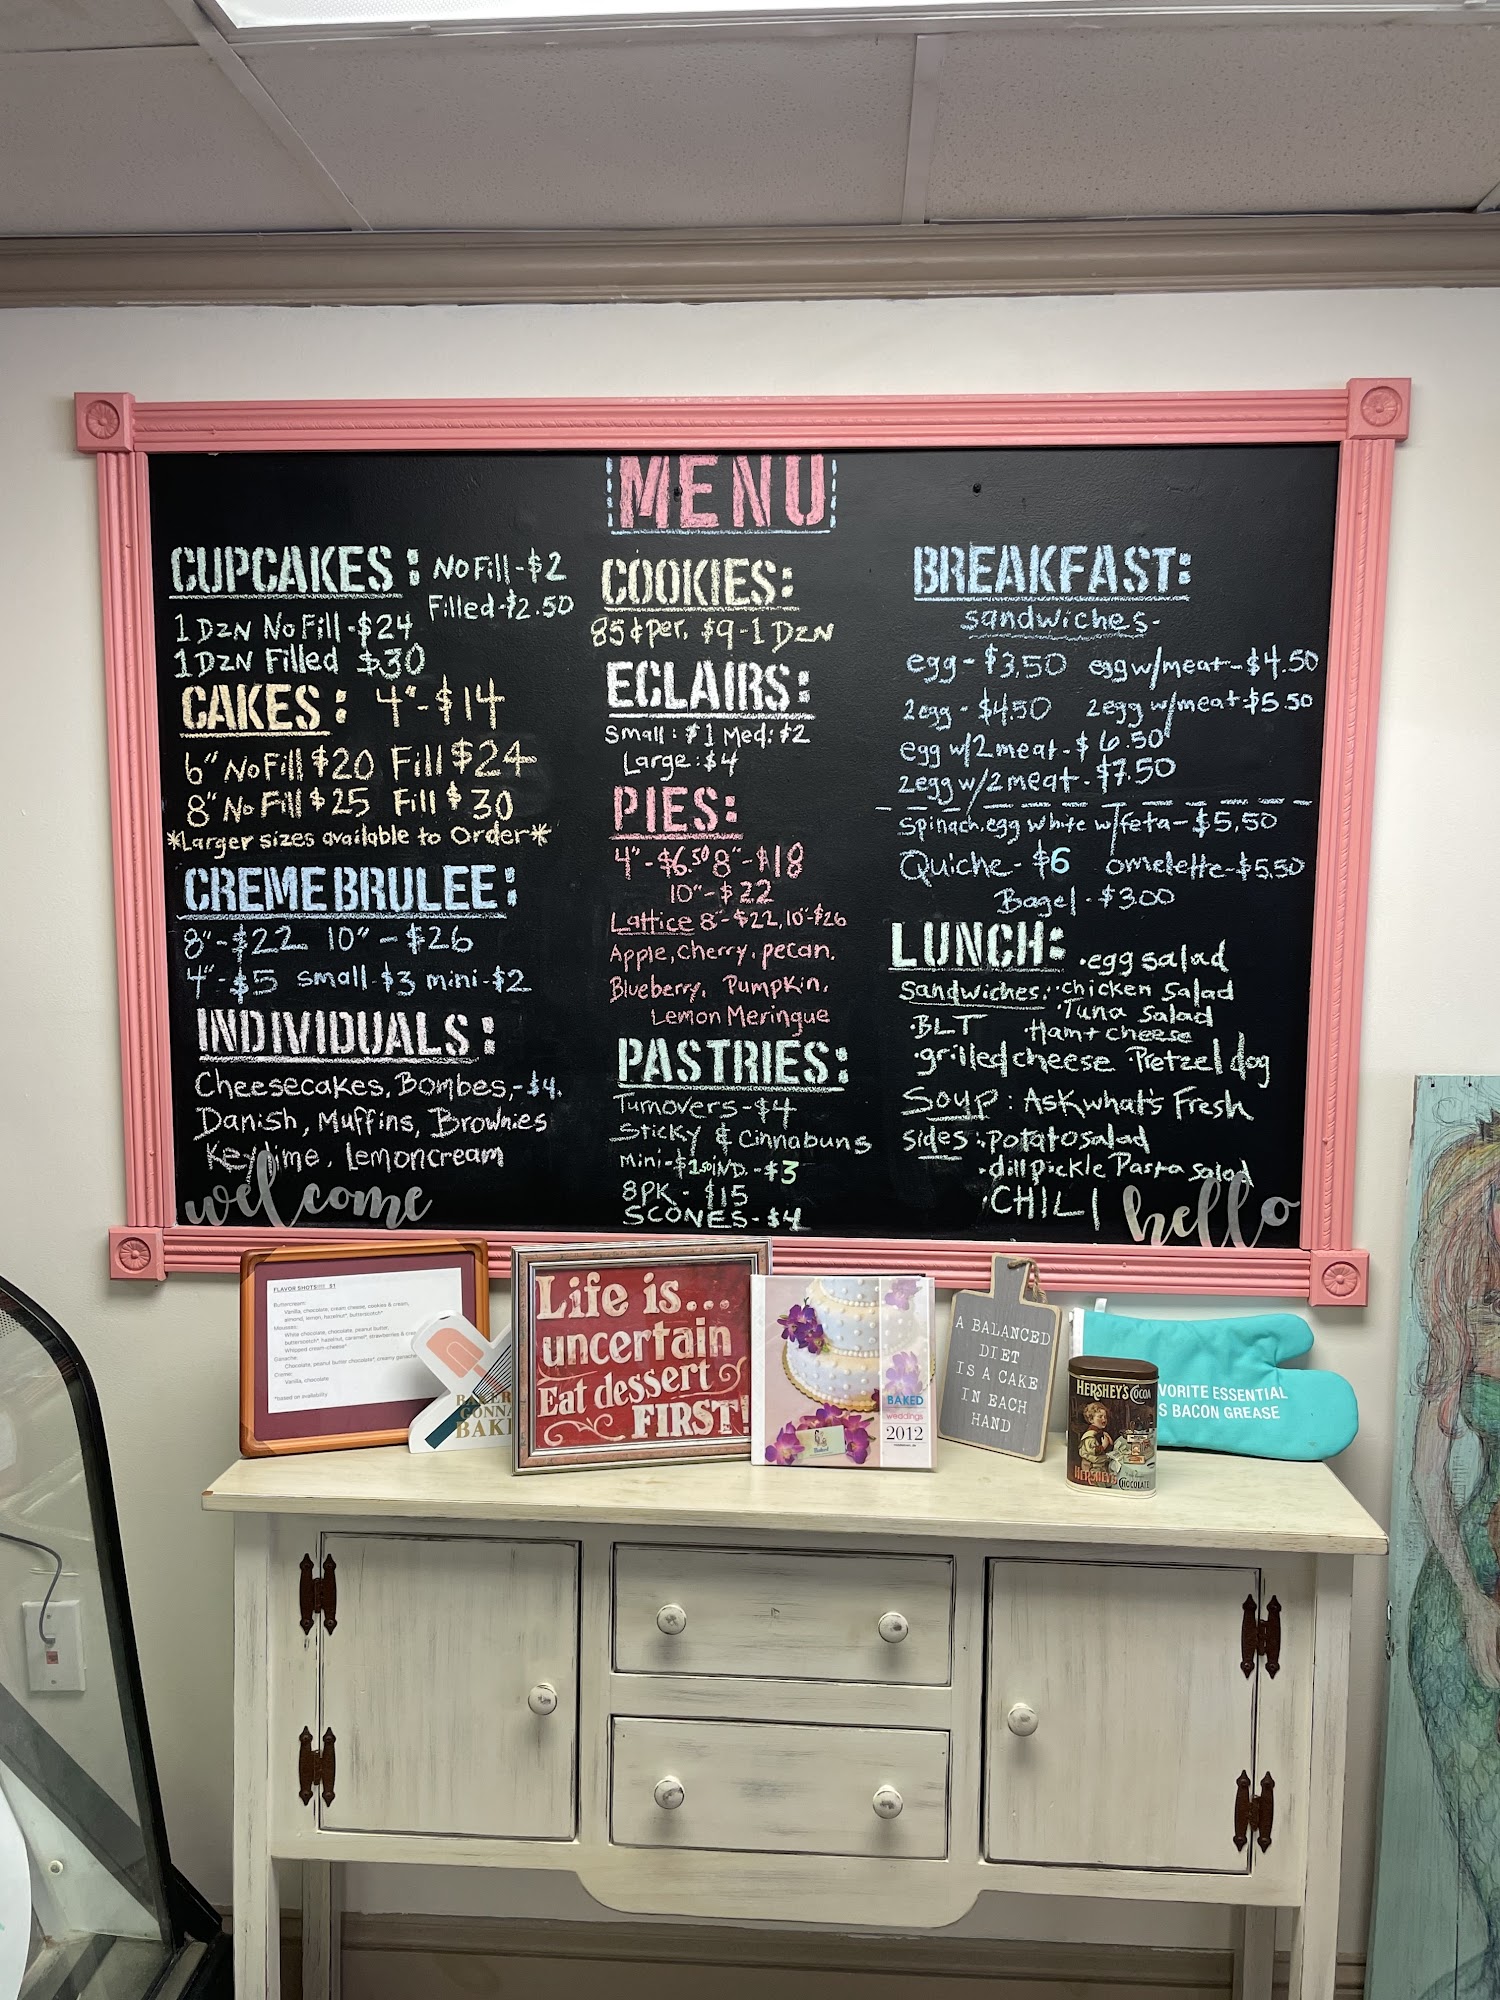 MENU
CUPCAKES: No Fill-$2
Filled-$2.50
1 DZN No Fill-$24
1DZN Filled $30
CAKES: 4"-$14
6" No Fill $20 Fill $24
8" No Fill $25 Fill $30
*Larger sizes available to Order*
CREME BRULEE:
8"-$22 10"-$26
4"-$5 small-$3 mini-$2
INDIVIDUALS:
Cheesecakes, Bombes,-$4.
Danish, Muffins, Brownies
Keylime, Lemoncream
welcome
COOKIES:
85¢ per, $9-1 DZN
ECLAIRS:
Small: $1 Med: $2
Large: $4
PIES:
4"-$6.50 8"-$18
10"-$22
Lattice 8"-$22, 10"-$26
Apple, Cherry, pecan,
Blueberry, Pumpkin,
Lemon Meringue
PASTRIES:
Turnovers-$4
Sticky & Cinnabuns
mini-$1.50 IND.-$3
8PK-$15
SCONES-$4
BREAKFAST:
sandwiches-
egg-$3.50 egg w/meat-$4.50
2egg-$4.50 2egg w/meat-$5.50
egg w/2 meat-$6.50
2egg w/2meat-$7.50
Spinach, egg white w/feta-$5.50
Quiche-$6 omelette-$5.50
Bagel-$3.00
LUNCH: •egg salad
Sandwiches: •chicken salad
•Tuna salad
•BLT •Ham+cheese
•grilled cheese Pretzel dog
Soup: Ask what's Fresh
sides: •potato salad
•dill pickle Pasta salad
•CHILI
hello
FLAVOR SHOTS!!!! $1
Buttercream:
Vanilla, chocolate, cream cheese, cookies & cream,
almond, lemon, hazelnut*, butterscotch*
Mousses:
White chocolate, chocolate, peanut butter,
butterscotch*, hazelnut, caramel*, strawberries & cre
Whipped cream cheese*
Ganache:
Chocolate, peanut butter chocolate*, creamy ganache
Creme:
Vanilla, chocolate
*based on availability
GONNA
BAK
Life is...
uncertain
Eat dessert
FIRST!
BAKED
weddings
2012
A BALANCED
DIET
IS A CAKE
IN EACH
HAND
HERSHEY'S COCOA
HERSHEY'S
CHOCOLATE
VORITE ESSENTIAL
S BACON GREASE